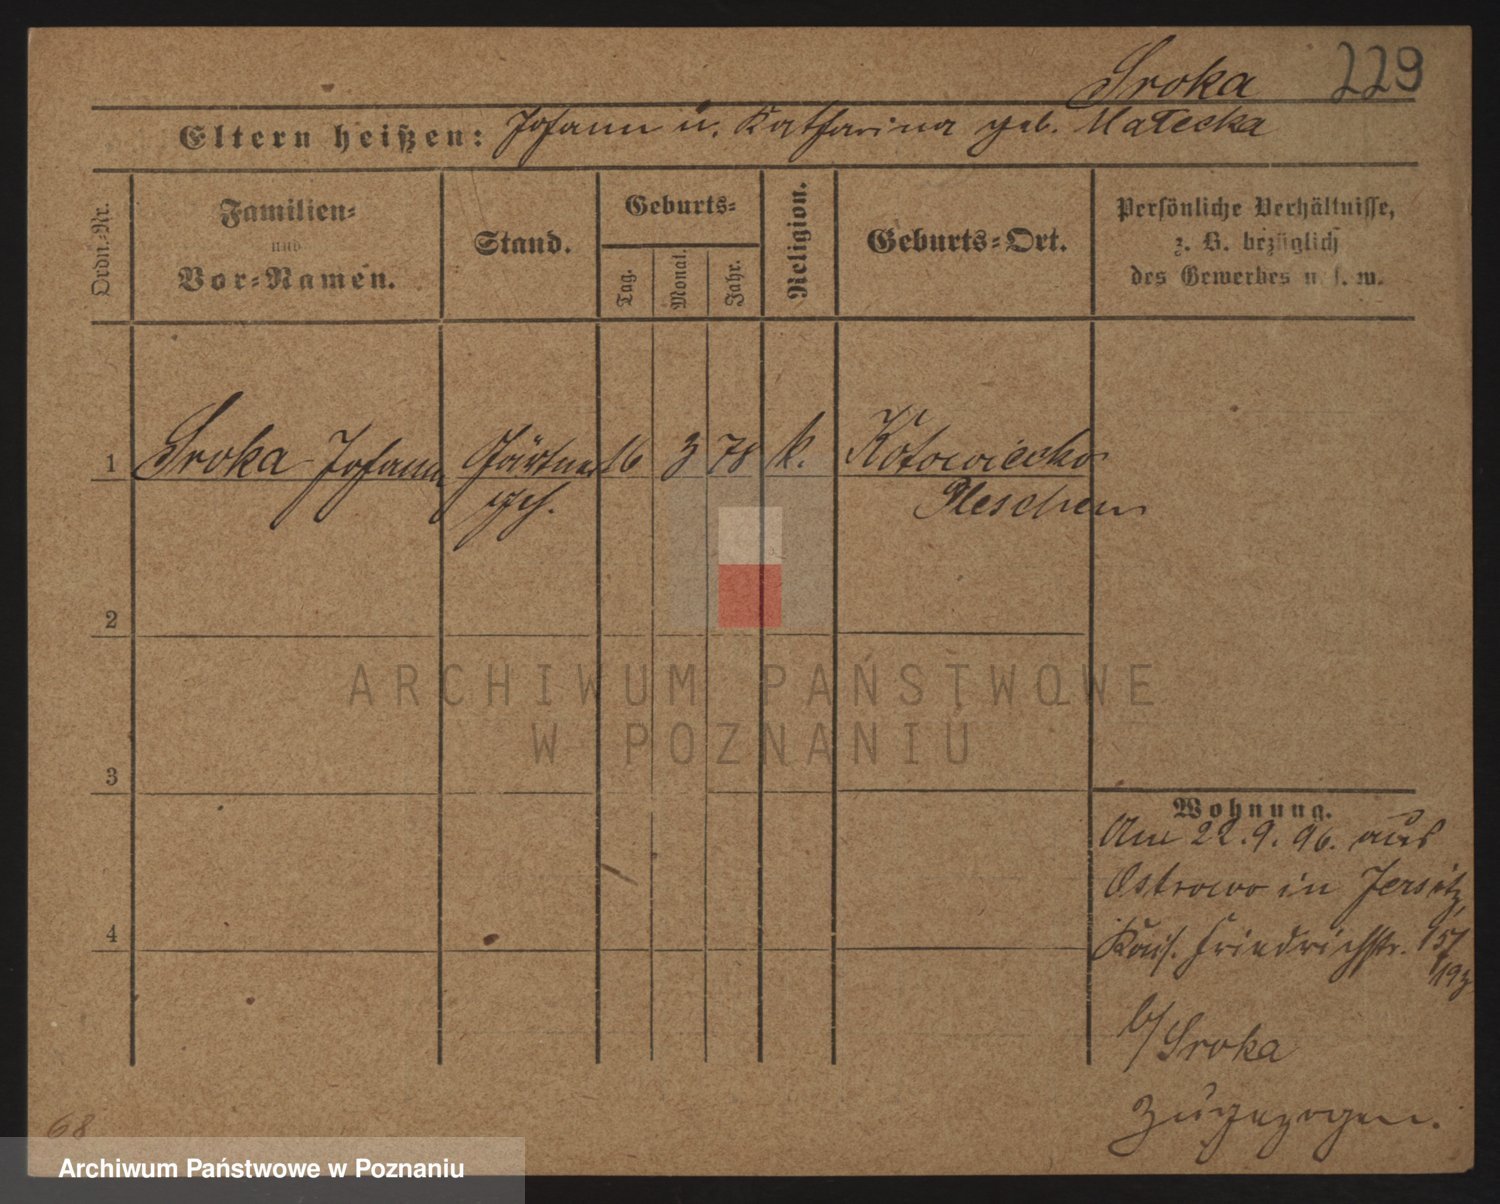 Sroka 229
Eltern heißen: Johann u. Katharina geb. Małecka
Ordn.-Nr.
Familien-
und
Vor-Namen.
Stand.
Geburts-
Tag.
Monat.
Jahr.
Religion.
Geburts-Ort.
Persönliche Verhältnisse,
z. B. bezüglich
des Gewerbes u. s. w.
1 Sroka Johann Gärtner 16 3 78 k. Kotowiecko
geh. Pleschen
2
3
4
Wohnung.
Am 22.9.96. aus
Ostrowo in Jersitz,
Kais. Friedrichstr. 157
b/ Sroka
zugezogen.
68
ARCHIWUM PAŃSTWOWE
W POZNANIU
Archiwum Państwowe w Poznaniu